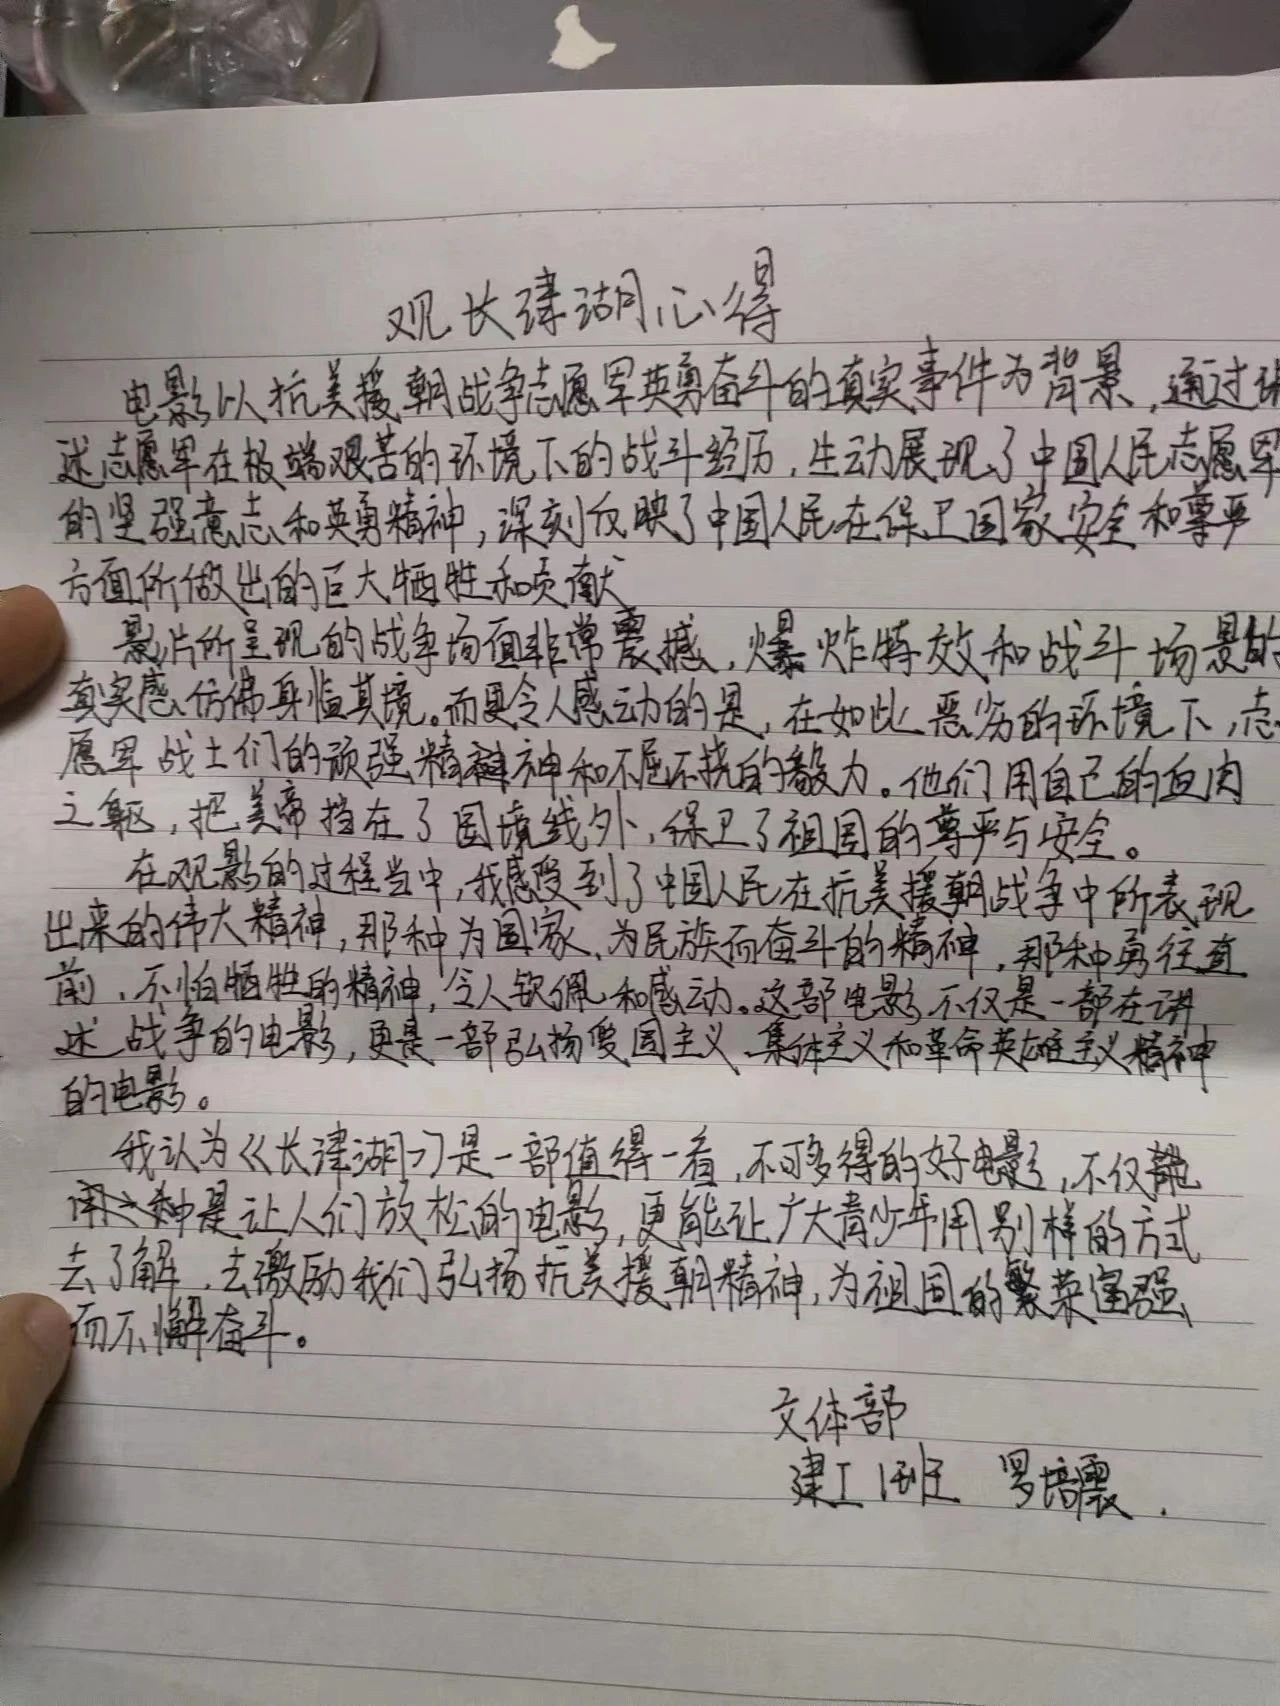 观长津湖心得
电影以抗美援朝战争志愿军英勇奋斗的真实事件为背景，通过讲
述志愿军在极端艰苦的环境下的战斗经历，生动展现了中国人民志愿军
的坚强意志和英勇精神，深刻反映了中国人民在保卫国家安全和尊严
方面所做出的巨大牺牲和贡献
影片所呈现的战争场面非常震撼，爆炸特效和战斗场景的
真实感仿佛身临其境。而更令人感动的是，在如此恶劣的环境下，志
愿军战士们的顽强精神和不屈不挠的毅力。他们用自己的血肉
之躯，把美帝挡在了国境线外，保卫了祖国的尊严与安全。
在观影的过程当中，我感受到了中国人民在抗美援朝战争中所表现
出来的伟大精神，那种为国家、为民族而奋斗的精神，那种勇往直
前、不怕牺牲的精神，令人钦佩和感动。这部电影不仅是一部在讲
述战争的电影，更是一部弘扬爱国主义、集体主义和革命英雄主义精神
的电影。
我认为《长津湖》是一部值得一看，不可多得的好电影，不仅
是让人们放松的电影，更能让广大青少年用别样的方式
去了解，去激励我们弘扬抗美援朝精神，为祖国的繁荣富强
而不懈奋斗。
文体部
建工1班 罗培